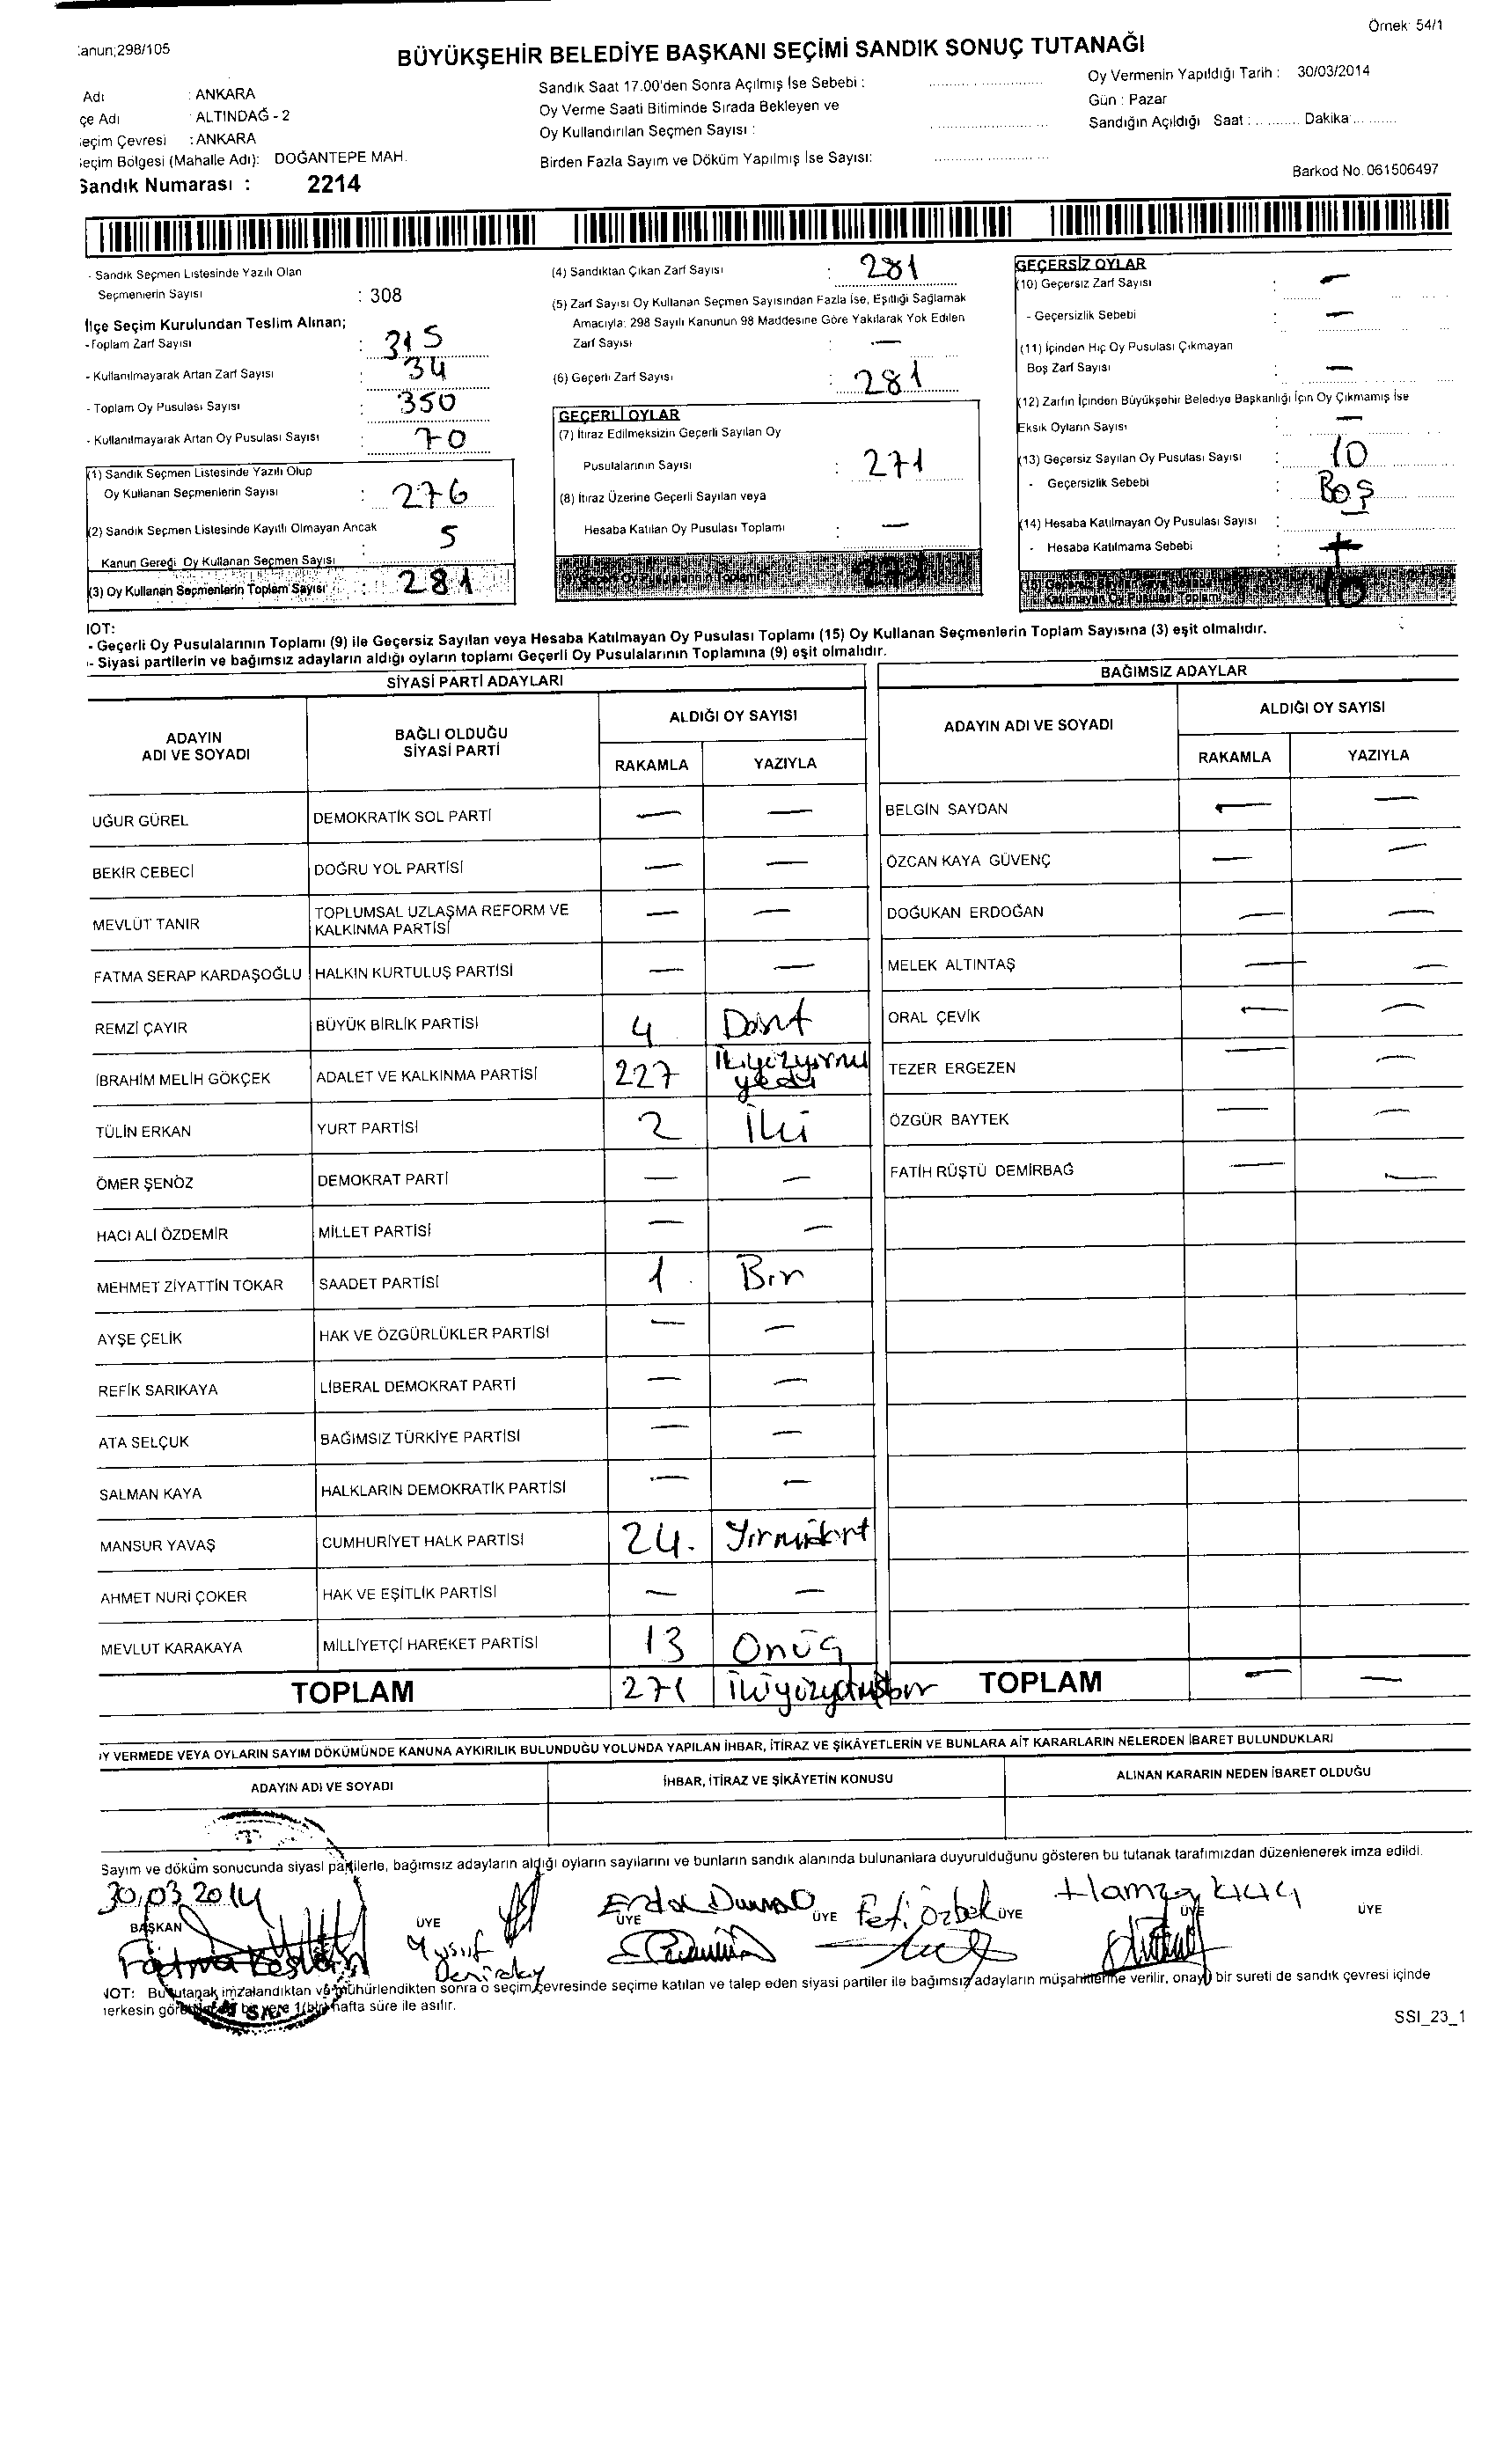 Örnek: 54/1
:anun;298/105
BÜYÜKŞEHİR BELEDİYE BAŞKANI SEÇİMİ SANDIK SONUÇ TUTANAĞI
Adı : ANKARA
çe Adı : ALTINDAĞ - 2
eçim Çevresi : ANKARA
eçim Bölgesi (Mahalle Adı): DOĞANTEPE MAH.
Sandık Numarası : 2214
Sandık Saat 17.00'den Sonra Açılmış İse Sebebi :
Oy Verme Saati Bitiminde Sırada Bekleyen ve
Oy Kullandırılan Seçmen Sayısı :
Birden Fazla Sayım ve Döküm Yapılmış İse Sayısı:
Oy Vermenin Yapıldığı Tarih : 30/03/2014
Gün : Pazar
Sandığın Açıldığı Saat : .......... Dakika:..........
Barkod No.061506497
- Sandık Seçmen Listesinde Yazılı Olan
Seçmenlerin Sayısı : 308
İlçe Seçim Kurulundan Teslim Alınan;
-Toplam Zarf Sayısı : 315
- Kullanılmayarak Artan Zarf Sayısı : 34
- Toplam Oy Pusulası Sayısı : 350
- Kullanılmayarak Artan Oy Pusulası Sayısı : 70
(1) Sandık Seçmen Listesinde Yazılı Olup
Oy Kullanan Seçmenlerin Sayısı : 276
(2) Sandık Seçmen Listesinde Kayıtlı Olmayan Ancak
Kanun Gereği Oy Kullanan Seçmen Sayısı : 5
(3) Oy Kullanan Seçmenlerin Toplam Sayısı : 281
(4) Sandıktan Çıkan Zarf Sayısı : 281
(5) Zarf Sayısı Oy Kullanan Seçmen Sayısından Fazla İse, Eşitliği Sağlamak
Amacıyla: 298 Sayılı Kanunun 98 Maddesine Göre Yakılarak Yok Edilen
Zarf Sayısı : —
(6) Geçerli Zarf Sayısı : 281
GEÇERLİ OYLAR
(7) İtiraz Edilmeksizin Geçerli Sayılan Oy
Pusulalarının Sayısı : 271
(8) İtiraz Üzerine Geçerli Sayılan veya
Hesaba Katılan Oy Pusulası Toplamı : —
(9) Geçerli Oy Pusulalarının Toplamı 271
GEÇERSİZ OYLAR
(10) Geçersiz Zarf Sayısı : —
- Geçersizlik Sebebi : —
(11) İçinden Hiç Oy Pusulası Çıkmayan
Boş Zarf Sayısı : —
(12) Zarfın İçinden Büyükşehir Belediye Başkanlığı İçin Oy Çıkmamış İse
Eksik Oyların Sayısı : —
(13) Geçersiz Sayılan Oy Pusulası Sayısı : 10
- Geçersizlik Sebebi : Boş
(14) Hesaba Katılmayan Oy Pusulası Sayısı : —
- Hesaba Katılmama Sebebi :
(15) Geçersiz Sayılan veya Hesaba
Katılmayan Oy Pusulası Toplamı 10
NOT:
- Geçerli Oy Pusulalarının Toplamı (9) ile Geçersiz Sayılan veya Hesaba Katılmayan Oy Pusulası Toplamı (15) Oy Kullanan Seçmenlerin Toplam Sayısına (3) eşit olmalıdır.
- Siyasi partilerin ve bağımsız adayların aldığı oyların toplamı Geçerli Oy Pusulalarının Toplamına (9) eşit olmalıdır.
SİYASİ PARTİ ADAYLARI
ADAYIN ADI VE SOYADI BAĞLI OLDUĞU SİYASİ PARTİ ALDIĞI OY SAYISI
RAKAMLA YAZIYLA
UĞUR GÜREL DEMOKRATİK SOL PARTİ — —
BEKİR CEBECİ DOĞRU YOL PARTİSİ — —
MEVLÜT TANIR TOPLUMSAL UZLAŞMA REFORM VE KALKINMA PARTİSİ — —
FATMA SERAP KARDAŞOĞLU HALKIN KURTULUŞ PARTİSİ — —
REMZİ ÇAYIR BÜYÜK BİRLİK PARTİSİ 4 Dört
İBRAHİM MELİH GÖKÇEK ADALET VE KALKINMA PARTİSİ 227 İkiyüzyirmi yedi
TÜLİN ERKAN YURT PARTİSİ 2 İki
ÖMER ŞENÖZ DEMOKRAT PARTİ — —
HACI ALİ ÖZDEMİR MİLLET PARTİSİ — —
MEHMET ZİYATTİN TOKAR SAADET PARTİSİ 1 Bir
AYŞE ÇELİK HAK VE ÖZGÜRLÜKLER PARTİSİ — —
REFİK SARIKAYA LİBERAL DEMOKRAT PARTİ — —
ATA SELÇUK BAĞIMSIZ TÜRKİYE PARTİSİ — —
SALMAN KAYA HALKLARIN DEMOKRATİK PARTİSİ — —
MANSUR YAVAŞ CUMHURİYET HALK PARTİSİ 24. Yirmidört
AHMET NURİ ÇOKER HAK VE EŞİTLİK PARTİSİ — —
MEVLUT KARAKAYA MİLLİYETÇİ HAREKET PARTİSİ 13 Onüç
TOPLAM 271 İkiyüzyetmişbir
BAĞIMSIZ ADAYLAR
ADAYIN ADI VE SOYADI ALDIĞI OY SAYISI
RAKAMLA YAZIYLA
BELGİN SAYDAN — —
ÖZCAN KAYA GÜVENÇ — —
DOĞUKAN ERDOĞAN — —
MELEK ALTINTAŞ — —
ORAL ÇEVİK — —
TEZER ERGEZEN — —
ÖZGÜR BAYTEK — —
FATİH RÜŞTÜ DEMİRBAĞ — —
TOPLAM — —
Y VERMEDE VEYA OYLARIN SAYIM DÖKÜMÜNDE KANUNA AYKIRILIK BULUNDUĞU YOLUNDA YAPILAN İHBAR, İTİRAZ VE ŞİKÂYETLERİN VE BUNLARA AİT KARARLARIN NELERDEN İBARET BULUNDUKLARI
ADAYIN ADI VE SOYADI İHBAR, İTİRAZ VE ŞİKÂYETİN KONUSU ALINAN KARARIN NEDEN İBARET OLDUĞU
Sayım ve döküm sonucunda siyasi partilerle, bağımsız adayların aldığı oyların sayılarını ve bunların sandık alanında bulunanlara duyurulduğunu gösteren bu tutanak tarafımızdan düzenlenerek imza edildi.
30.03.2014
BAŞKAN ÜYE ÜYE ÜYE ÜYE ÜYE ÜYE
Fatma Yusuf Feti Özbek Hamza Kılıç
NOT: Bu tutanak imzalandıktan ve mühürlendikten sonra o seçim çevresinde seçime katılan ve talep eden siyasi partiler ile bağımsız adayların müşahitlerine verilir, onaylı bir sureti de sandık çevresi içinde
erkesin görebileceği bir yere 1(bir) hafta süre ile asılır.
SSI_23_1